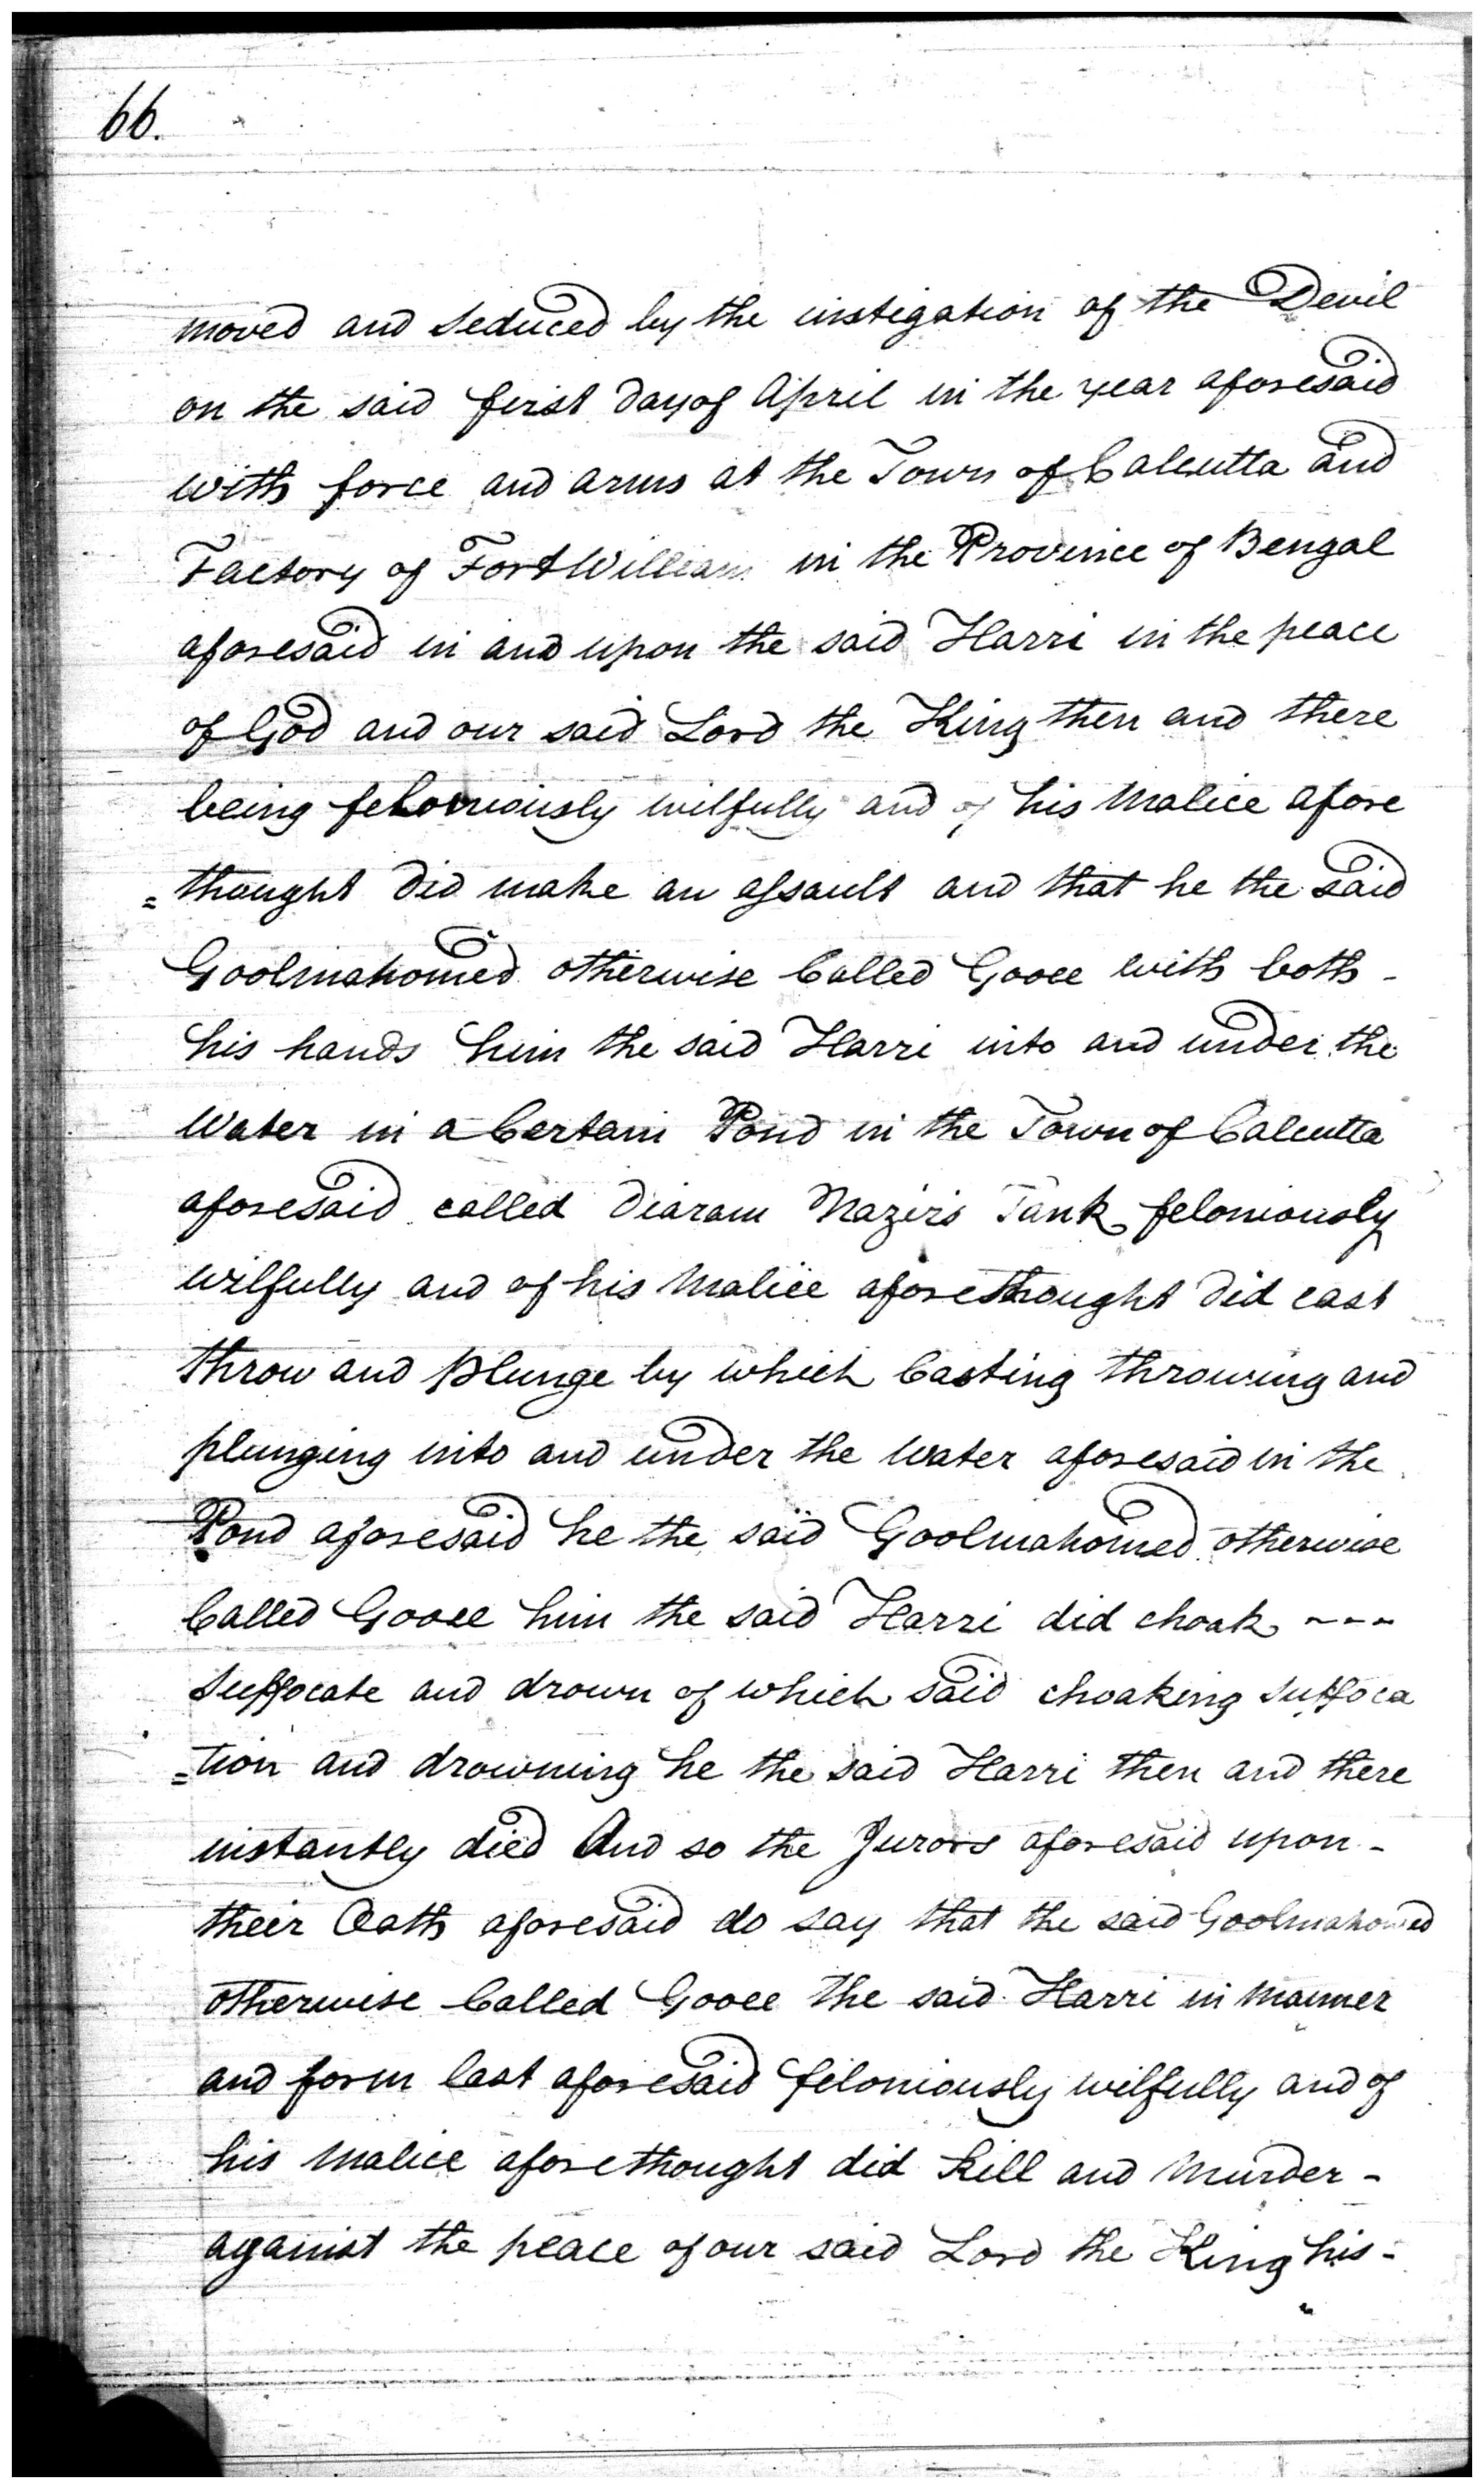 66.
moved and seduced by the instigation of the Devil
on the said first day of April in the year aforesaid
with force and arms at the Town of Calcutta and
Factory of Fort William in the Province of Bengal
aforesaid in and upon the said Harri in the peace
of God and our said Lord the King then and there
being feloniously wilfully and of his Malice afore
=thought did make an assault and that he the said
Goolmahomed otherwise Called Gooee with both -
his hands him the said Harri into and under the
Water in a Certain Pond in the Town of Calcutta
aforesaid called Diaram Nazirs Tank feloniously
wilfully and of his Malice aforethought did cast
throw and plunge by which Casting throwing and
plunging into and under the Water aforesaid in the
Pond aforesaid he the said Goolmahomed otherwise
Called Gooee him the said Harri did choak ---
suffocate and drown of which said choaking suffoca
=tion and drowning he the said Harri then and there
instantly died And so the Jurors aforesaid upon -
their Oath aforesaid do say that the said Goolmahomed
otherwise Called Gooee the said Harri in Manner
and form last aforesaid feloniously wilfully and of
his Malice aforethought did Kill and Murder -
against the peace of our said Lord the King his -